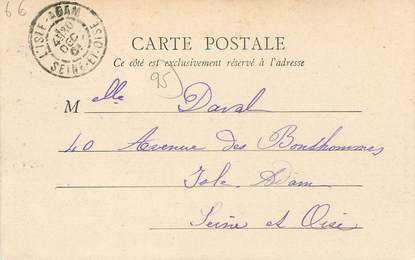 66
L'ISLE-ADAM
SEINE-ET-OISE
CARTE POSTALE
Ce côté est exclusivement réservé à l'adresse
95)
Melle Daval
40 Avenue des Bonshommes
Isle Adam
Seine et Oise